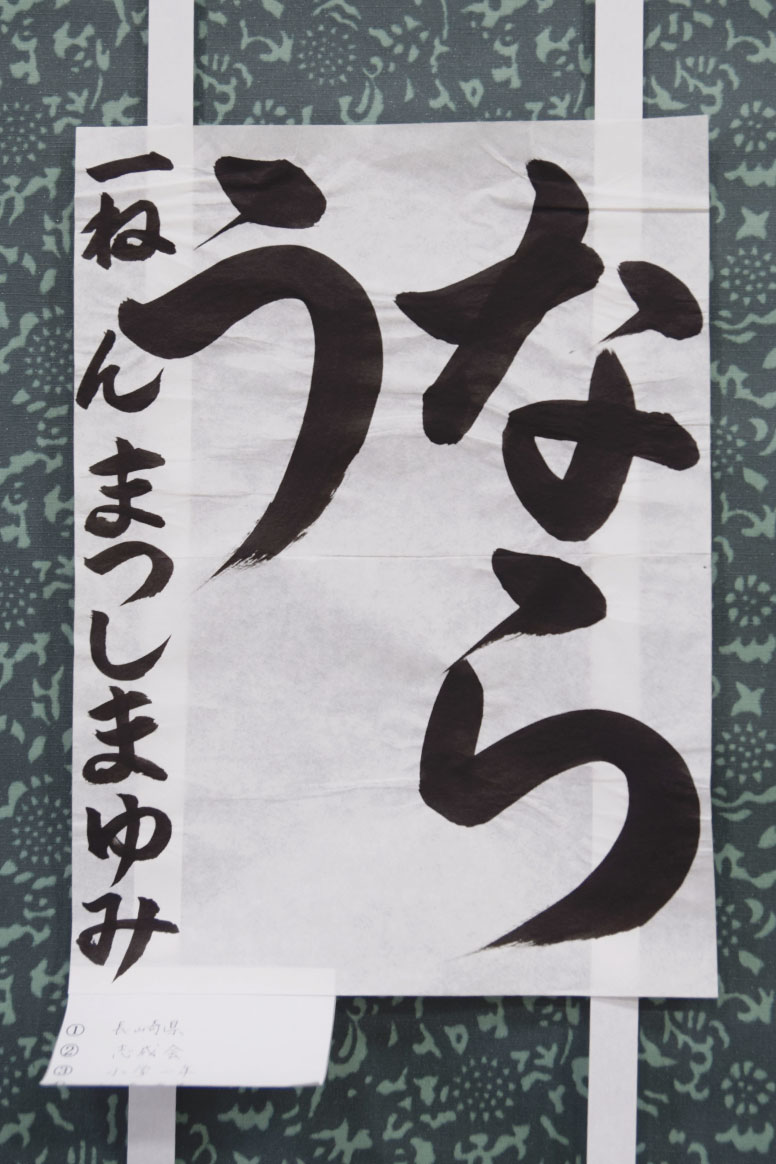 なら
う
一ねんまつしまゆみ
① 長崎県
② 志成会
③ 小学一年